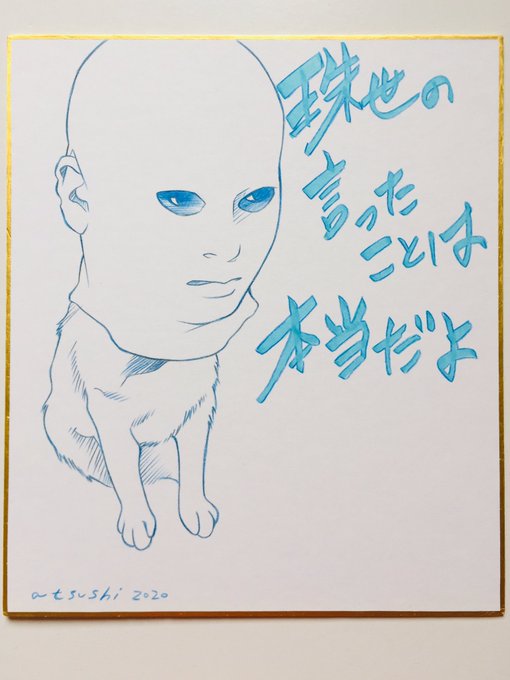 珠世の
言った
ことは
本当だよ
atsushi 2020